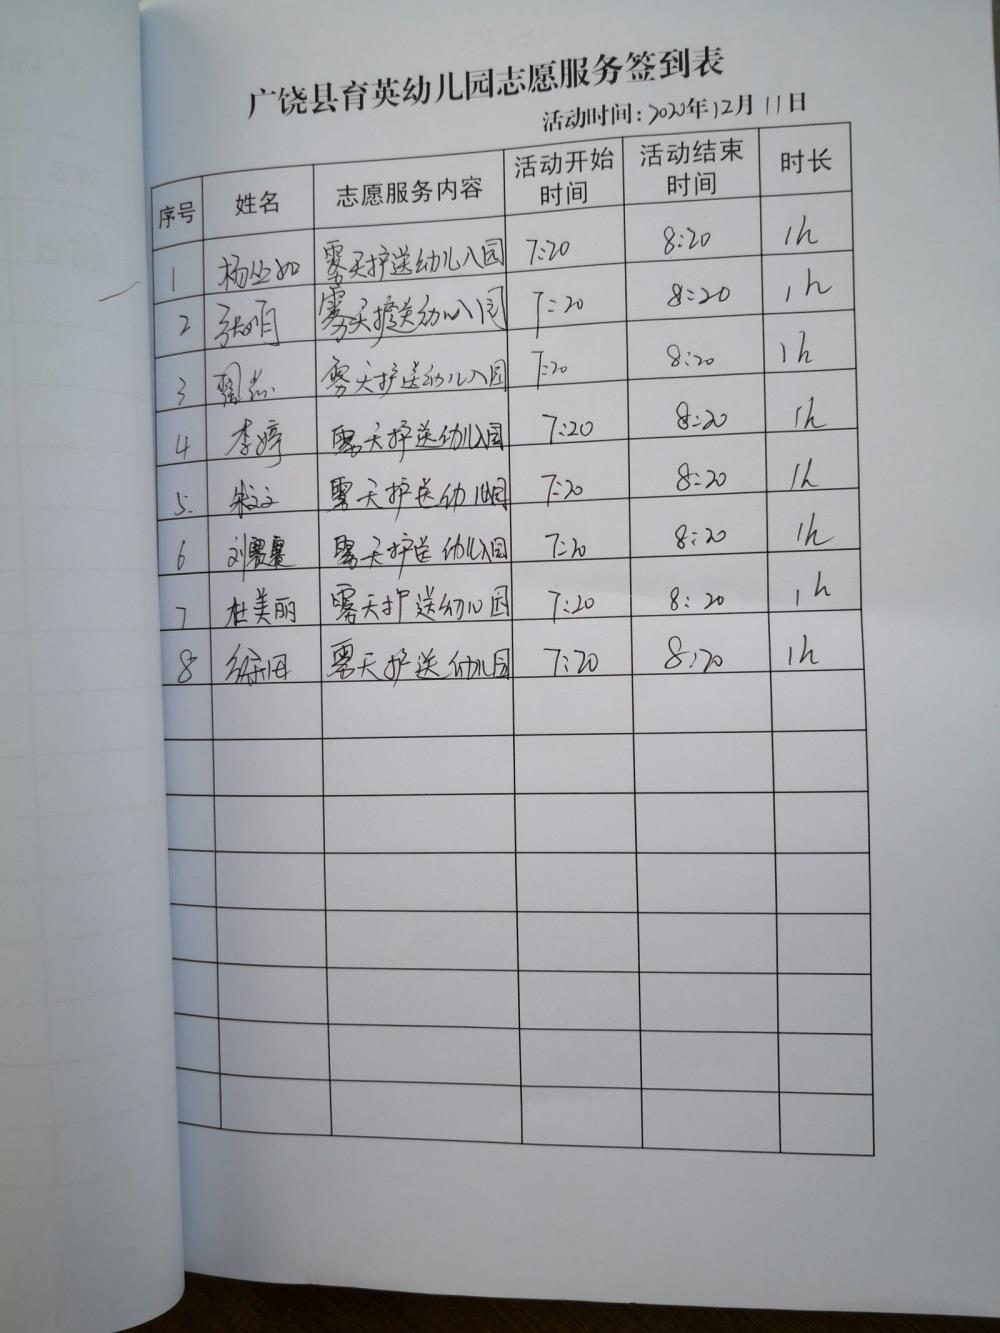 广饶县育英幼儿园志愿服务签到表
活动时间:2020年12月11日
序号 姓名 志愿服务内容 活动开始时间 活动结束时间 时长
1 杨丛如 雾天护送幼儿入园 7:20 8:20 1h
2 张明 雾天护送幼儿入园 7:20 8:20 1h
3 雾天护送幼儿入园 7:20 8:20 1h
4 李婷 雾天护送幼儿入园 7:20 8:20 1h
5. 朱文文 雾天护送幼儿入园 7:20 8:20 1h
6 刘霞霞 雾天护送幼儿入园 7:20 8:20 1h
7 杜美丽 雾天护送幼儿园 7:20 8:20 1h
8 雾天护送幼儿园 7:20 8:20 1h